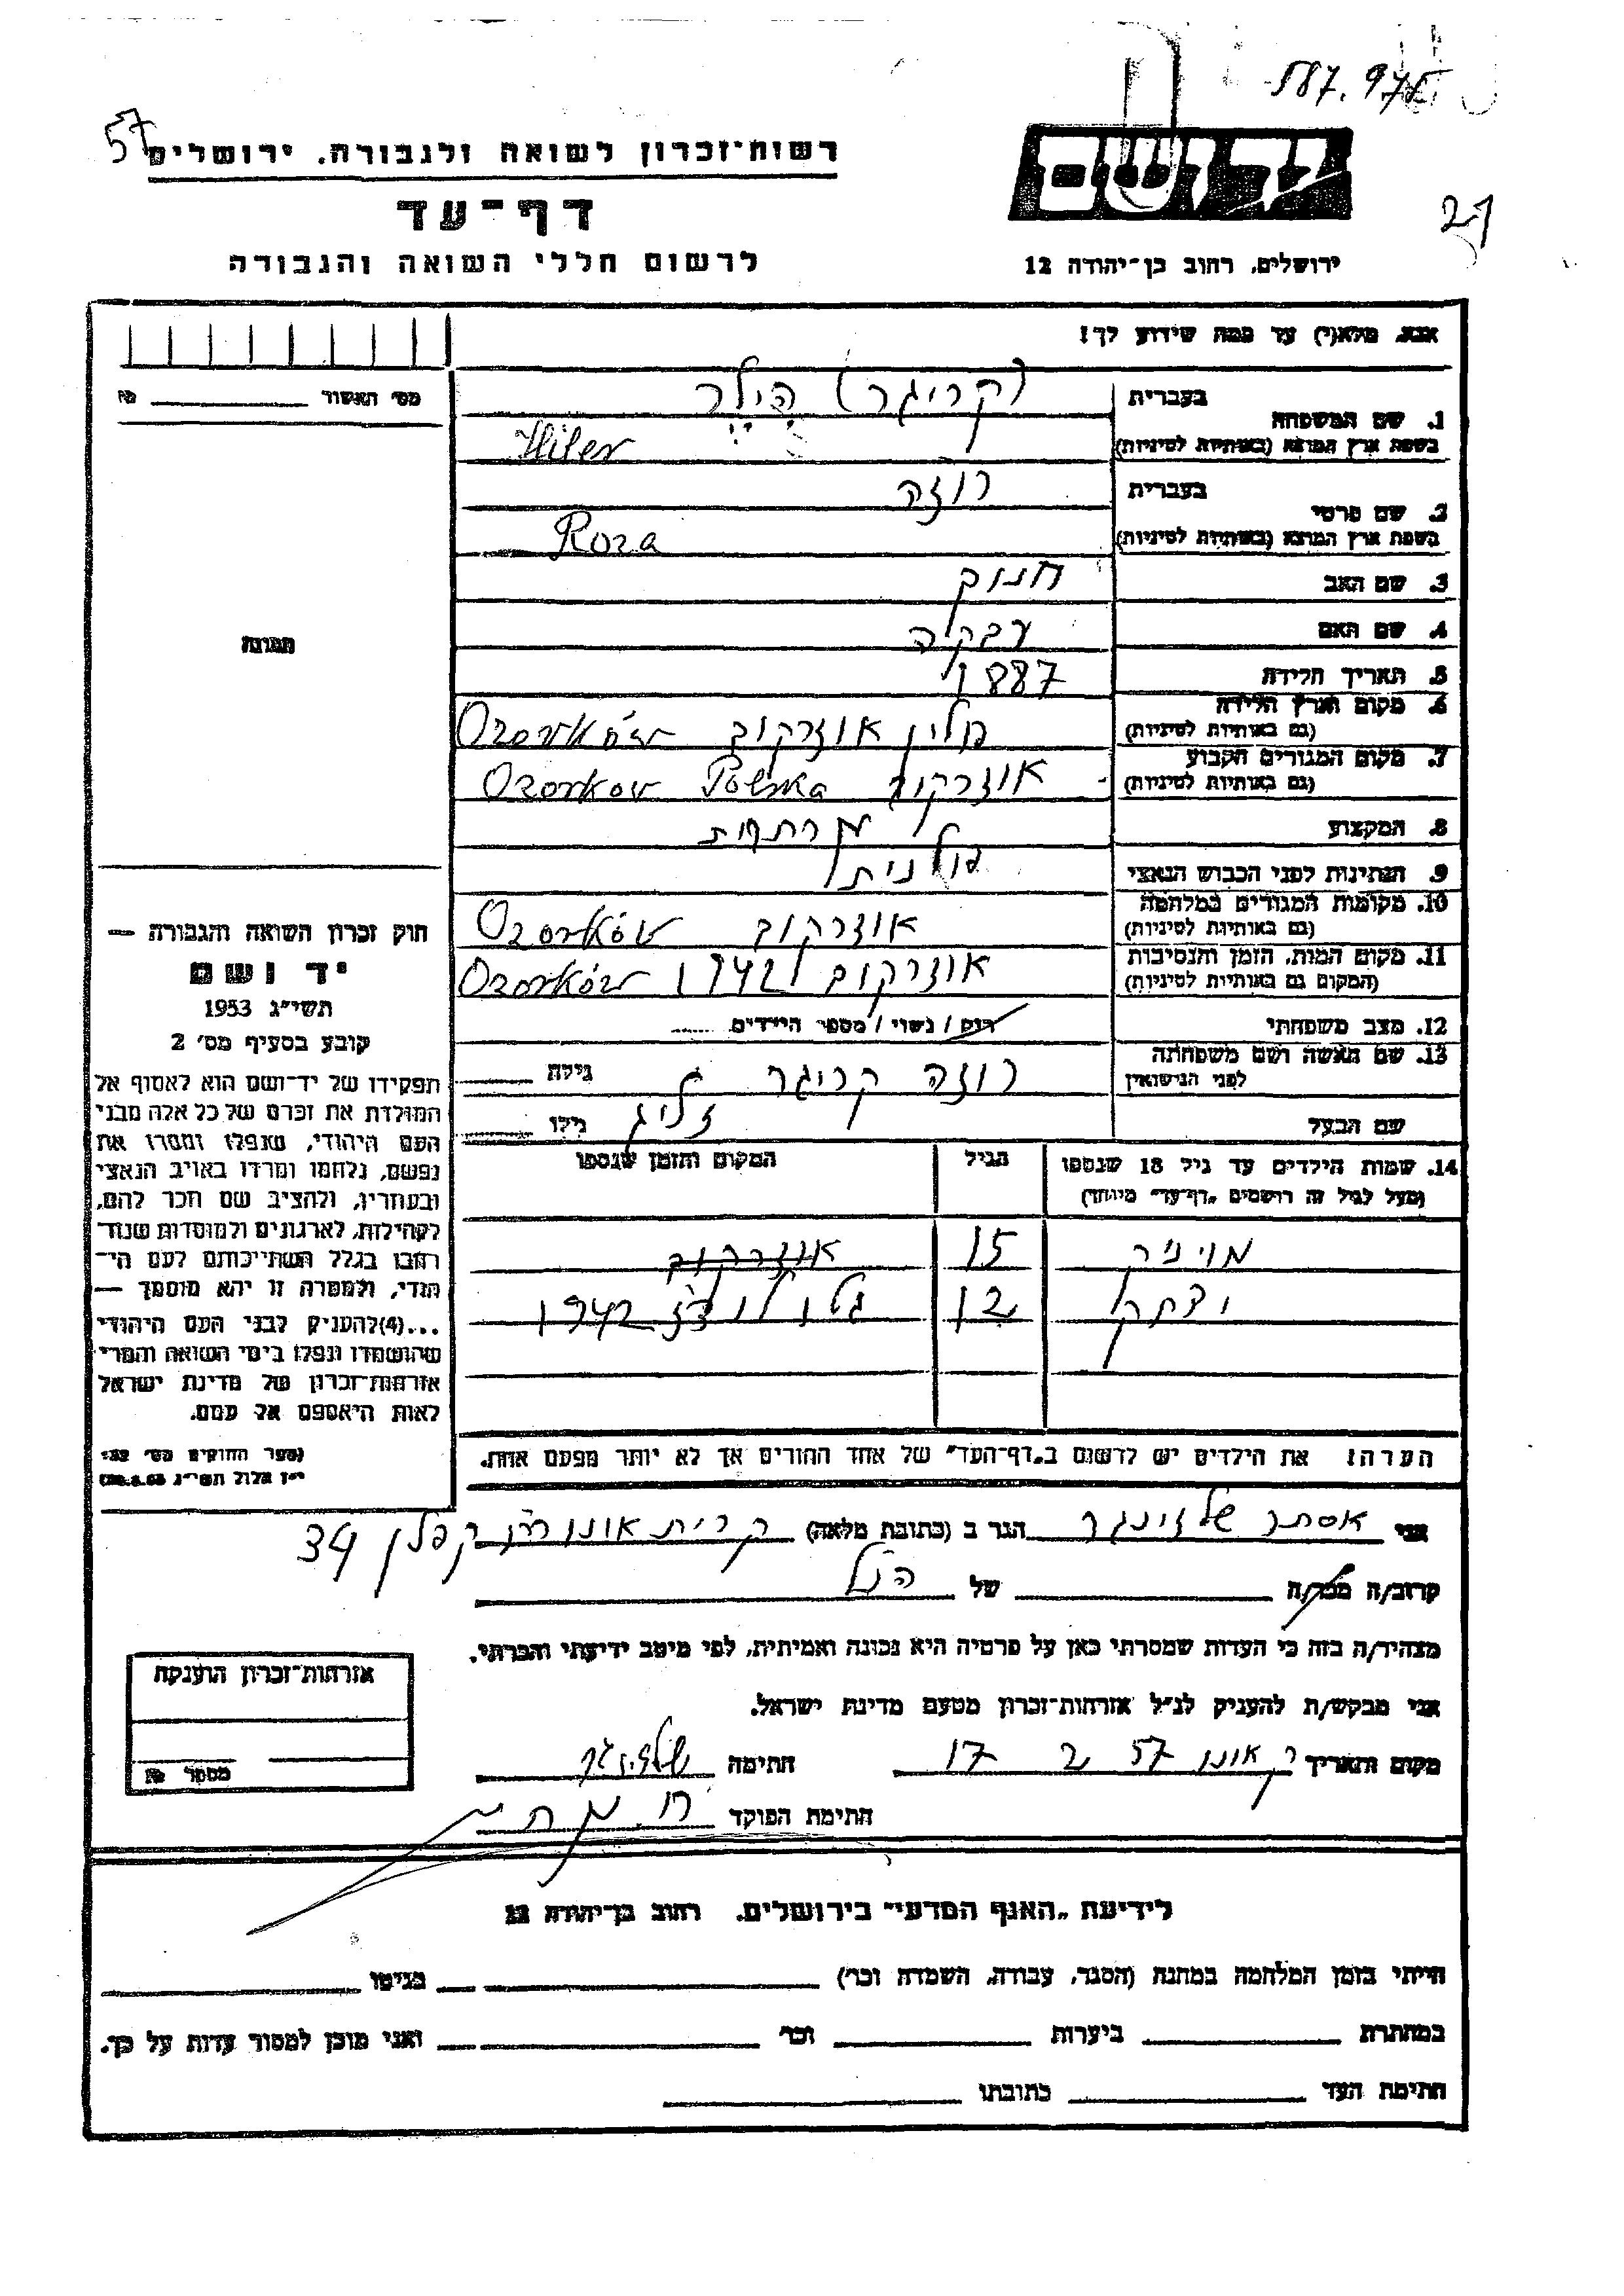 587.975
57
רשות־זכרון לשואה ולגבורה. ירושלים
יד ושם
דף־עד
21
לרשום חללי השואה והגבורה
ירושלים, רחוב בן־יהודה 12
אנא, מלא(י) עד כמה שידוע לך!
מס' האשור No
1. שם המשפחה
בעברית (קריגר) הילר
בשפת ארץ המוצא (באותיות לטיניות) Hiler
2. שם פרטי
בעברית רוזה
בשפת ארץ המוצא (באותיות לטיניות) Roza
3. שם האב חנוך
4. שם האם
תמונה
5. תאריך הלידה 1887
6. מקום וארץ הלידה (גם באותיות לטיניות) פולין אוזרקוב Ozorków
7. מקום המגורים הקבוע (גם באותיות לטיניות) אוזרקוב Ozorkow Polska
8. המקצוע
9. הנתינות לפני הכבוש הנאצי פולנית
10. מקומות המגורים במלחמה (גם באותיות לטיניות) אוזרקוב Ozorków
11. מקום המות, הזמן והנסיבות (המקום גם באותיות לטיניות) אוזרקוב 1942 Ozorków
12. מצב משפחתי רוק / נשוי / מספר הילדים
13. שם האשה ושם משפחתה לפני הנישואין רוזה קריגר גילה
שם הבעל זליג גילו
14. שמות הילדים עד גיל 18 שנספו
(מעל לגיל זה רושמים „דף־עד" מיוחד)
הגיל
המקום והזמן שנספו
15 אוזרקוב
12 1942
הערה! את הילדים יש לרשום ב„דף־העד" של אחד ההורים אך לא יותר מפעם אחת.
חוק זכרון השואה והגבורה —
יד ושם
תשי״ג 1953
קובע בסעיף מס' 2
תפקידו של יד־ושם הוא לאסוף אל
המולדת את זכרם של כל אלה מבני
העם היהודי, שנפלו ומסרו את
נפשם, נלחמו ומרדו באויב הנאצי
ובעוזריו, ולהציב שם וזכר להם,
לקהילות, לארגונים ולמוסדות שנח־
רבו בגלל השתייכותם לעם היהו־
הודי, ולמטרה זו יהא מוסמך —
...(4)להעניק לבני העם היהודי
שהושמדו ונפלו בימי השואה והמרי
אזרחות־זכרון של מדינת ישראל
לאות היאספם אל עמם.
(ספר החוקים מס' 132
י״ז אלול תשי״ג 28.8.53)
אני אסתר שלזינגר הגר ב (כתובת מלאה) קרית אונו רח' קפלן 34
קרוב/ה מכר/ה של הנ״ל
מצהיר/ה בזה כי העדות שמסרתי כאן על פרטיה היא נכונה ואמיתית, לפי מיטב ידיעתי והכרתי.
אני מבקש/ת להעניק לנ״ל אזרחות־זכרון מטעם מדינת ישראל.
מקום ותאריך ק אונו 57 2 17 חתימה שלזינגר
חתימת הפוקד
אזרחות־זכרון הוענקה
מספר No
לידיעת „האגף המדעי" בירושלים. רחוב בן־יהודה 12
הייתי בזמן המלחמה במחנה (הסגר, עבודה, השמדה וכו') בגיטו
במחתרת ביערות וכו' ואני מוכן למסור עדות על כך.
חתימת העד כתובתו